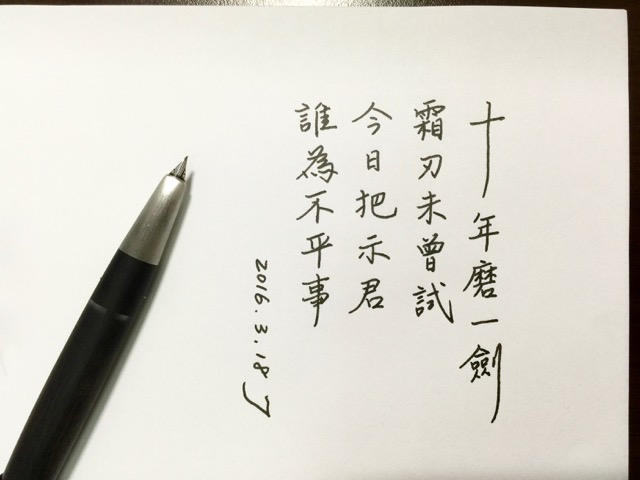 十年磨一劍
霜刃未曾試
今日把示君
誰為不平事
2016.3.18